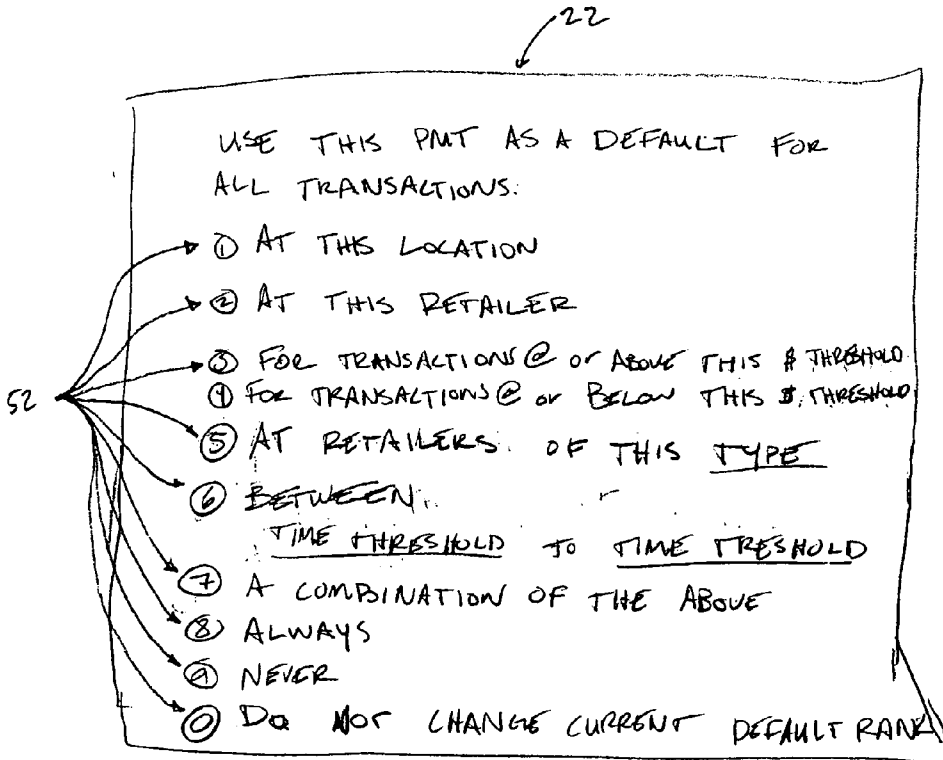 22
USE THIS PMT AS A DEFAULT FOR
ALL TRANSACTIONS:
① AT THIS LOCATION
② AT THIS RETAILER
③ FOR TRANSACTIONS @ or ABOVE THIS $ THRESHOLD
④ FOR TRANSACTIONS @ or BELOW THIS $ THRESHOLD
52
⑤ AT RETAILERS OF THIS TYPE
⑥ BETWEEN
TIME THRESHOLD TO TIME TRESHOLD
⑦ A COMBINATION OF THE ABOVE
⑧ ALWAYS
⑨ NEVER
⓪ DO NOT CHANGE CURRENT DEFAULT RANK